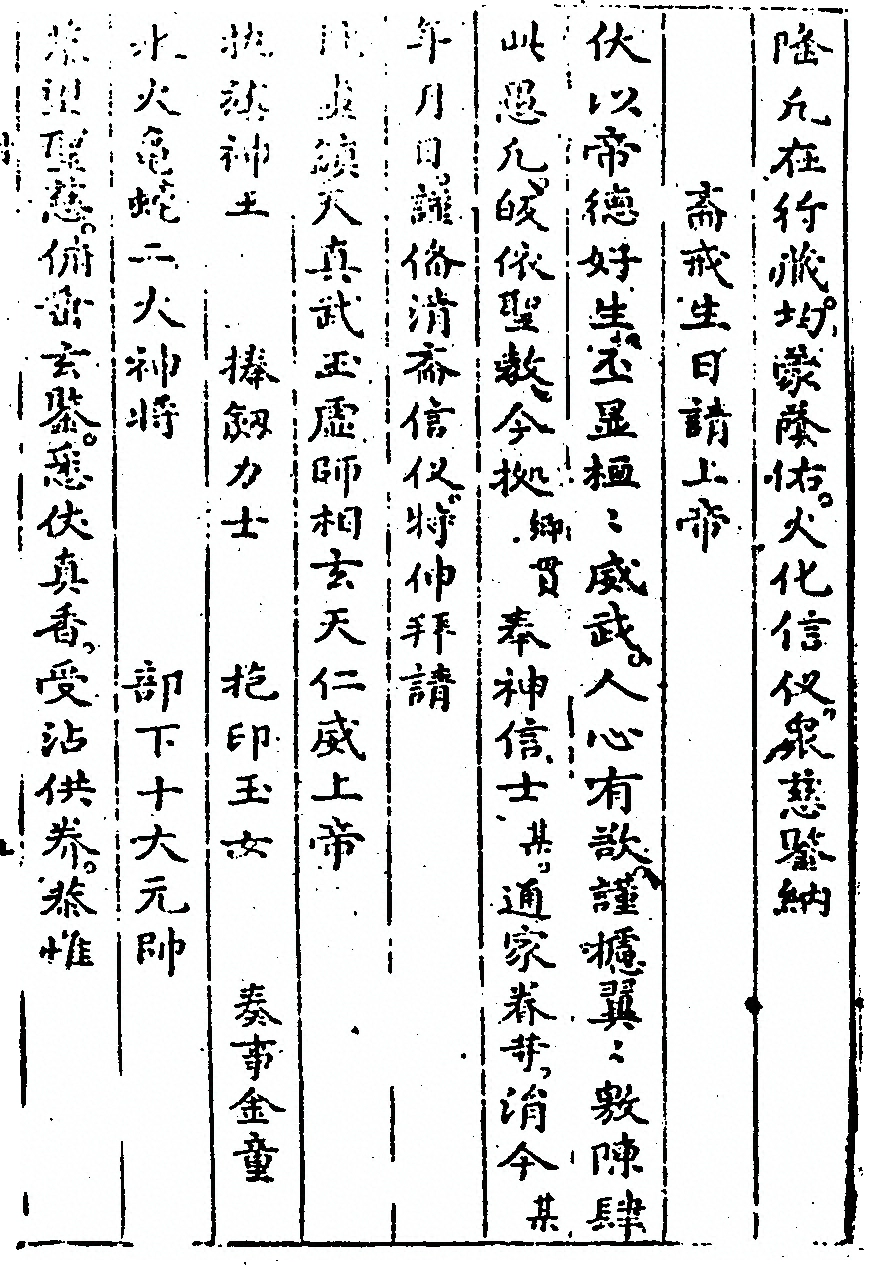 陷凡在行藏。均蒙蔭佑。火化信仪。衆慈鑒納
齋戒生日請上帝
伏以帝德好生。丕显桓〻威武。人心有欲。謹攄翼〻敷陳肆
此愚凡。皈依聖教。今拠鄉貫奉神信士某。通家眷等。涓今某
年月日。謹俻清齋信仪。特伸拜請
北極鎮天真武玉虚師相玄天仁威上帝
执旂神王　捧劔力士　抱印玉女　奏事金童
水火龜蛇二火神將　部下十大元帥
恭望聖慈。俯垂玄鑒。悉伏真香。受沾供养。恭惟